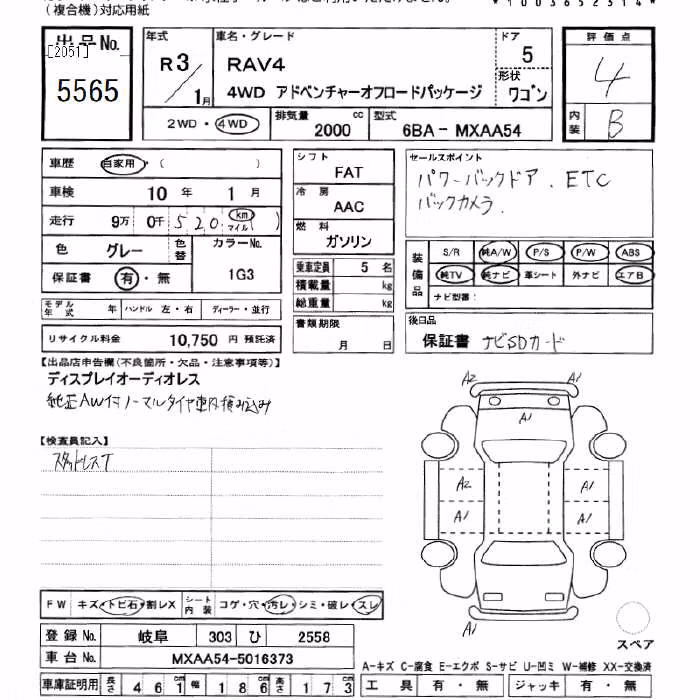 (複合機)対応用紙
*1003652314*
出品No.
[2051]
5565
年式
R3/1月
車名・グレード
RAV4
4WD アドベンチャーオフロードパッケージ
ドア
5
形状
ワゴン
評価点
4
内装
B
2WD・4WD
排気量
2000 cc
型式
6BA-MXAA54
車歴 自家用・( )
車検 10年 1月
走行 9万 0千 520 km マイル ( )
色 グレー
色替
カラーNo.
1G3
保証書 有・無
モデル年式 年
ハンドル 左・右
ディーラー・並行
リサイクル料金 10,750 円 預託済
シフト
FAT
冷房
AAC
燃料
ガソリン
乗車定員 5 名
積載量 kg
総重量 kg
書類期限
月 日
セールスポイント
パワーバックドア. ETC
バックカメラ.
装備品
S/R 純A/W P/S P/W ABS
純TV 純ナビ 革シート 外ナビ エアB
ナビ型番:
後日品
保証書 ナビSDカード
【出品店申告欄(不良箇所・欠品・注意事項等)】
ディスプレイオーディオレス
純正AW付ノーマルタイヤ車内積み込み
【検査員記入】
スタッドレスT
A2
A1
A2 A1
A1 A1
A1
スペア
FW キズ・トビ石・割レX
シート内装 コゲ・穴・汚レ・シミ・破レ・スレ
登録No. 岐阜 303 ひ 2558
車台No. MXAA54-5016373
車庫証明用 長さ 461 幅 186 高さ 173
A-キズ C-腐食 E-エクボ S-サビ U-凹ミ W-補修 XX-交換済
工具 有・無 ジャッキ 有・無